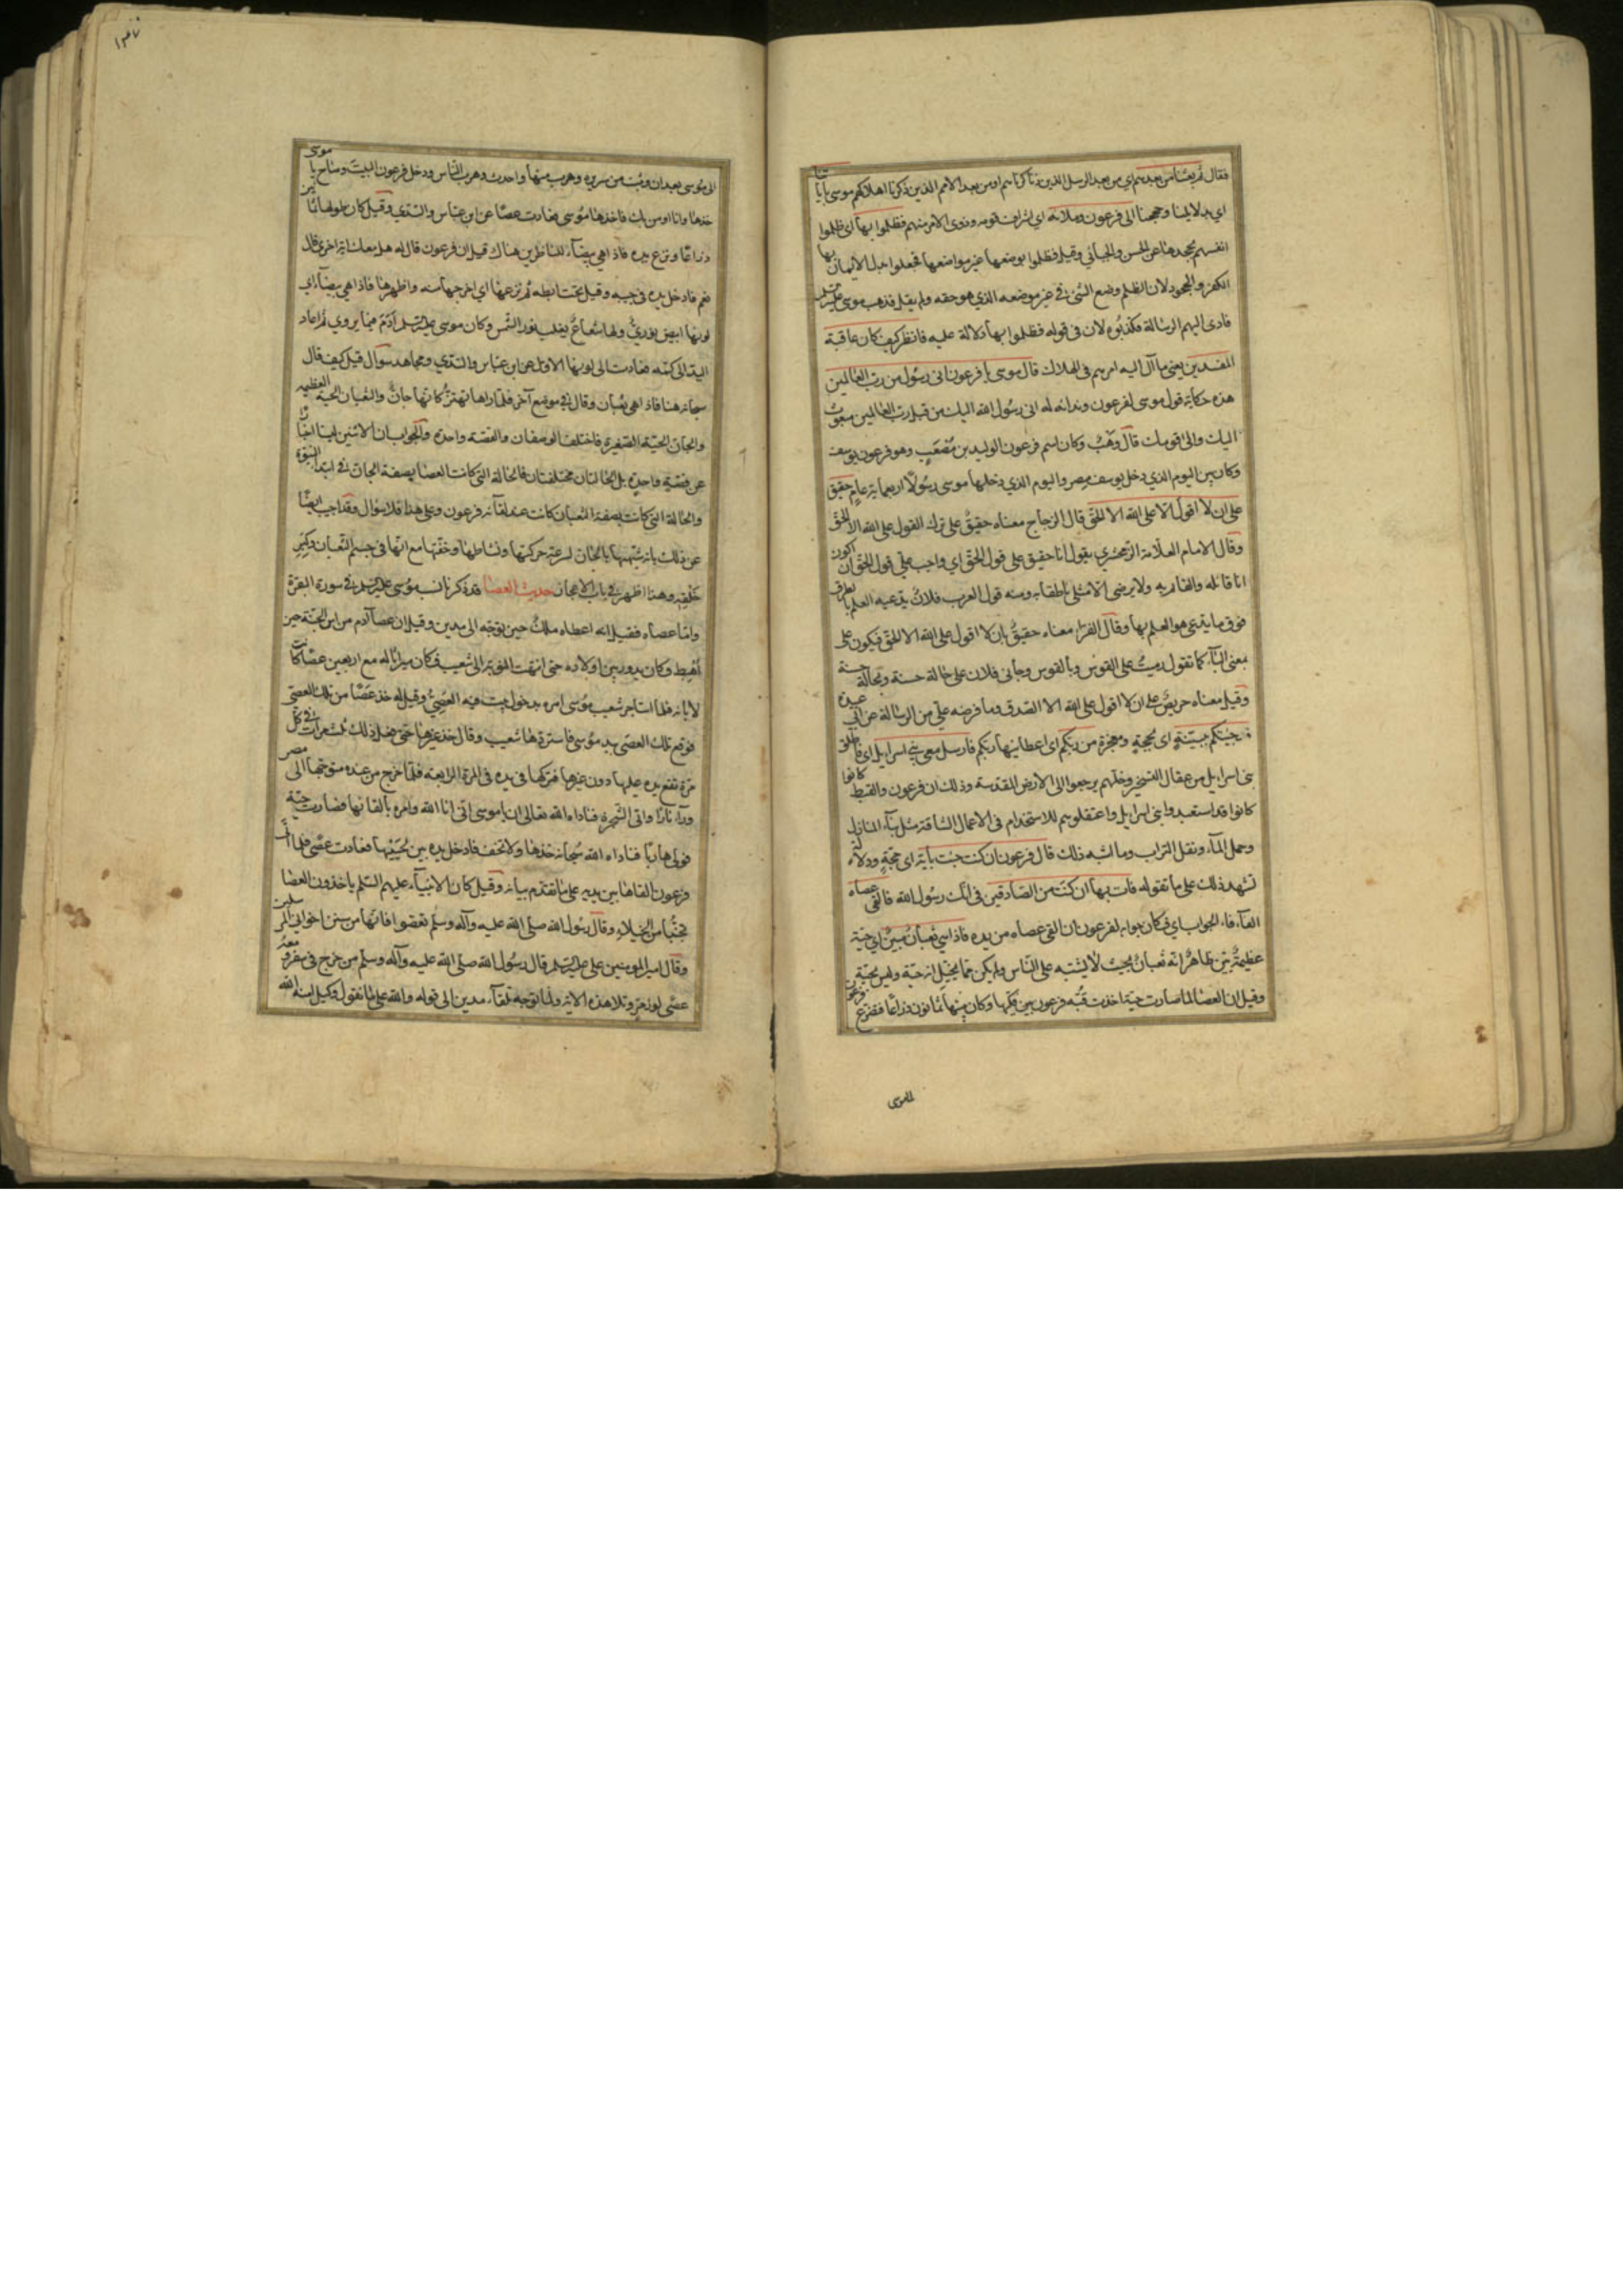 فقال ثم بعثنا من بعدهم اي من بعد الرسل الذين ذكرناهم او من بعد الامم الذين ذكرنا اهلاكهم موسى باياتنا
اي بدلايلنا وحججنا الى فرعون وملائه اي اشراف قومه وذوى الامر منهم فظلموا بها اي ظلموا
انفسهم بجحدها عن الحسن والجبائي وقيل فظلموا بوضعها غير مواضعها فجعلوا بدل الايمان بها
الكفر والجحود لان الظلم وضع الشئ في غير موضعه الذي هو حقه ولم يقل فذهب موسى عليه السلم
فادى اليهم الرسالة فكذبوه لان في قوله فظلموا بها دلالة عليه فانظر كيف كان عاقبة
المفسدين يعني ما آل اليه امرهم في الهلاك قال موسى يا فرعون اني رسول من رب العالمين
هذه حكاية قول موسى لفرعون وندائه له اني رسول الله اليك من قبل رب العالمين مبعوث
اليك والى قومك قال وهب وكان اسم فرعون الوليد بن مصعب وهو فرعون يوسف
وكان بين اليوم الذي دخل يوسف مصر واليوم الذي دخلها موسى رسولا اربعماية عام حقيق
على ان لا اقول على الله الا الحق قال الزجاج معناه حقيق على ترك القول على الله الا الحق
وقال الامام العلامة الزمخشري يقول انا حقيق على قول الحق اي واجب علي قول الحق ان اكون
انا قائله والقائم به ولا يرضى الا مثلي ناطقا به ومنه قول العرب فلان يدعيه العلم
فوق ما يدعي هو العلم بها وقال الفراء معناه حقيق بان لا اقول على الله الا الحق فيكون على
بمعنى الباء كما تقول رميت على القوس وبالقوس وجاني فلان على حالة حسنة وبحالة حسنة
وقيل معناه حريص على ان لا اقول على الله الا الصدق وما فرضه علي من الرسالة عن ابي عبيدة
قد جئتكم ببينة اي بحجة ومعجزة من ربكم اي اعطانيها ربكم فارسل معي بني اسرايل اي فاطلق
بني اسرايل من عقال التسخير وخلهم يرجعوا الى الارض المقدسة وذلك ان فرعون والقبط كانوا
كانوا قد استعبدوا بني اسرايل واعتقلوهم للاستخدام في الاعمال الشاقة مثل بناء المنازل
وحمل الماء ونقل التراب وما اشبه ذلك قال فرعون ان كنت جئت بآية اي حجة ودلالة
تشهد ذلك على ما تقوله فات بها ان كنت من الصادقين في انك رسول الله فالقى عصاه
الفاء فاء الجواب اي فكان جوابه لفرعون ان القى عصاه من يده فاذا هي ثعبان مبين اي حية
عظيمة بين ظاهر انه ثعبان بحيث لا يشتبه على الناس ولم يكن مما يخيل انه حية وليس بحية
وقيل ان العصا لما صارت حية اخذت قبة فرعون بين فكيها وكان بينهما ثمانون ذراعا فتضرع فرعون
الى موسى
الى موسى بعد ان وثب من سريره وهرب منها واحدث وهرب الناس ودخل فرعون البيت وصاح يا موسى
خذها وانا اومن بك فاخذها موسى فعادت عصا عن ابن عباس والسدي وقيل كان طولها ثمانين
ذراعا ونزع يده فاذا هي بيضاء للناظرين هناك قيل ان فرعون قال له هل معك اية اخرى قال
نعم فادخل يده في جيبه وقيل تحت ابطه ثم نزعها اي اخرجها منه واظهرها فاذا هي بيضاء اي
لونها ابيض نوري ولها شعاع يغلب نور الشمس وكان موسى عليه السلم آدم فيما يروى ثم اعاد
اليد الى كمه فعادت الى لونها الاول عن ابن عباس والسدي ومجاهد سوال قيل كيف قال
سبحانه هنا فاذا هي ثعبان وقال في موضع آخر فلما راها تهتز كانها جان والثعبان الحية العظيمة
والجان الحية الصغيرة فاختلف الوصفان والقصة واحدة والجواب ان الايتين ليستا اخبارا
عن قصة واحدة بل الحالتان مختلفتان فالحالة التي كانت العصا بصفة الجان في ابتدا النبوة
والحالة التي كانت بصفة الثعبان كانت عند لقائه فرعون وعلى هذا فلا سؤال وقد اجيب ايضا
عن ذلك بانه شبهها بالجان لسرعة حركتها ونشاطها وخفتها مع انها في جسم الثعبان وكبر
خلقه وهذا اظهر في باب الاعجاز حديث العصا قد ذكرنا نسب موسى عليه السلم في سورة البقرة
واما عصاه فقيل انه اعطاه ملك حين توجه الى مدين وقيل ان عصا آدم من اس الجنة حين
اهبط وكان يدور بين اولاده حتى انتهت النوبة الى شعيب فكان ميراثا له مع اربعين عصا كانت
لابائه فلما استاجر شعيب موسى امره بدخول بيت فيه العصي وقيل له خذ عصا من تلك العصي
فوقع تلك العصى بيد موسى فاستردها شعيب وقال خذ غيرها حتى فعل ذلك ثلث مرات في كل
مرة تقع يده عليها دون غيرها فتركها في يده في المرة الرابعة فلما خرج من عنده متوجها الى مصر
ورأى نارا واتى الشجرة فناداه الله تعالى ان يا موسى اني انا الله وامره بالقائها فصارت حية
فولى هاربا فناداه الله سبحانه خذها ولا تخف فادخل يده بين لحييها فعادت عصى فلما اتى
فرعون القاها بين يديه على ما تقدم بيانه وقيل كان الانبياء عليهم السلم ياخذون العصا
تجنبا من الخيلاء وقال رسول الله صلى الله عليه وآله وسلم تعصوا فانها من سنن اخواني المرسلين
وقال امير المومنين علي عليه السلم قال رسول الله صلى الله عليه وآله وسلم من خرج في سفر ومعه
عصى لوز مر وتلا هذه الاية ولما توجه تلقاء مدين الى قوله والله على ما نقول وكيل امنه الله
١٣٧